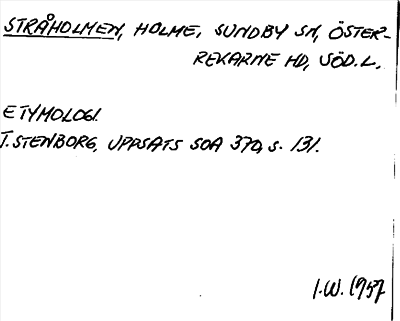 STRÅHOLMEN, HOLME, SUNDBY SN, ÖSTER-
REKARNE HD, SÖD.L.
ETYMOLOGI.
T. STENBORG, UPPSATS SOA 370, S. 131.
I.W. 1957